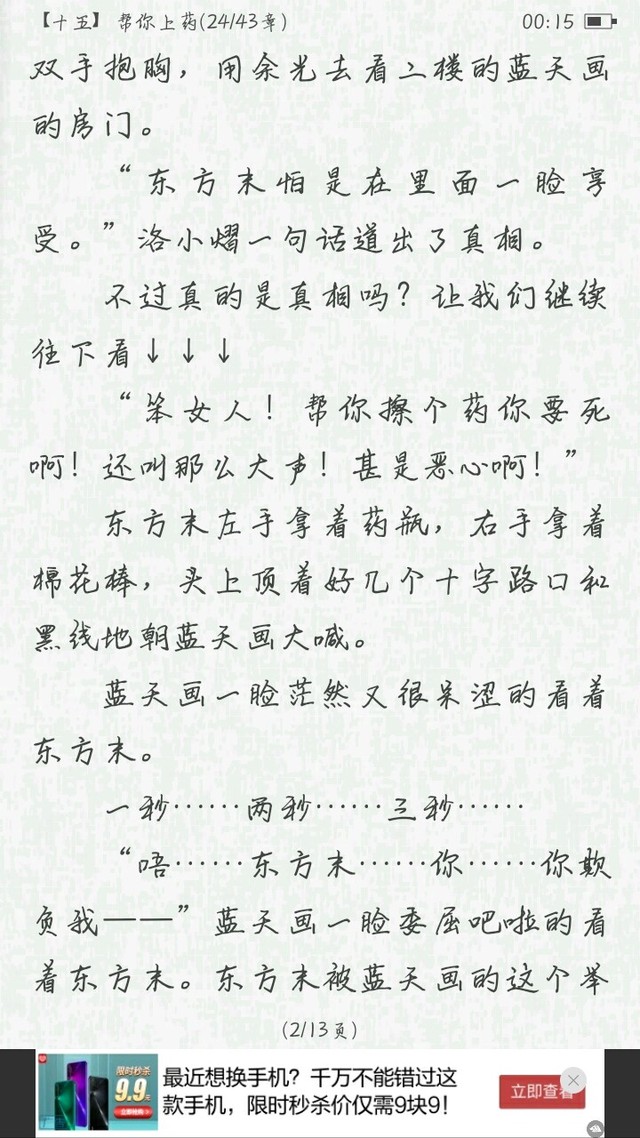 【十五】帮你上药(24/43章)
00:15
双手抱胸，用余光去看二楼的蓝天画
的房门。
“东方末怕是在里面一脸享
受。”洛小熠一句话道出了真相。
不过真的是真相吗？让我们继续
往下看↓↓↓
“笨女人！帮你擦个药你要死
啊！还叫那么大声！甚是恶心啊！”
东方末左手拿着药瓶，右手拿着
棉花棒，头上顶着好几个十字路口和
黑线地朝蓝天画大喊。
蓝天画一脸茫然又很呆涩的看着
东方末。
一秒……两秒……三秒……
“唔……东方末……你……你欺
负我——”蓝天画一脸委屈吧啦的看
着东方末。东方末被蓝天画的这个举
(2/13页)
限时秒杀
9.9元
最近想换手机？千万不能错过这
款手机，限时秒杀价仅需9块9！
立即查看